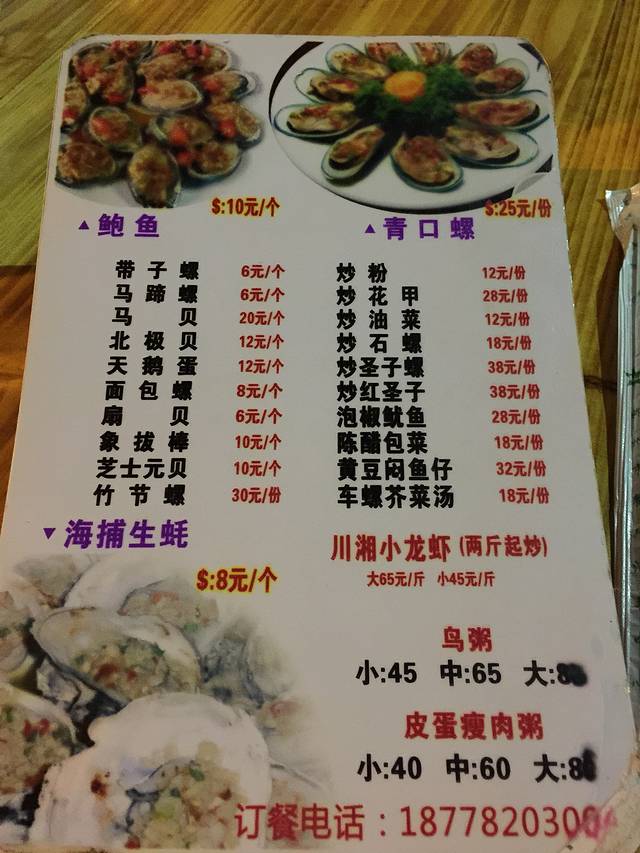 $:10元/个
$:25元/份
▲鲍鱼
▲青口螺
带子螺 6元/个
马蹄螺 6元/个
马贝 20元/个
北极贝 12元/个
天鹅蛋 12元/个
面包螺 8元/个
扇贝 6元/个
象拔棒 10元/个
芝士元贝 10元/个
竹节螺 30元/份
炒粉 12元/份
炒花甲 28元/份
炒油菜 12元/份
炒石螺 18元/份
炒圣子螺 38元/份
炒红圣子 38元/份
泡椒鱿鱼 28元/份
陈醋包菜 18元/份
黄豆闷鱼仔 32元/份
车螺芥菜汤 18元/份
▼海捕生蚝
$:8元/个
川湘小龙虾(两斤起炒)
大65元/斤 小45元/斤
鸟粥
小:45 中:65 大:
皮蛋瘦肉粥
小:40 中:60 大:
订餐电话：